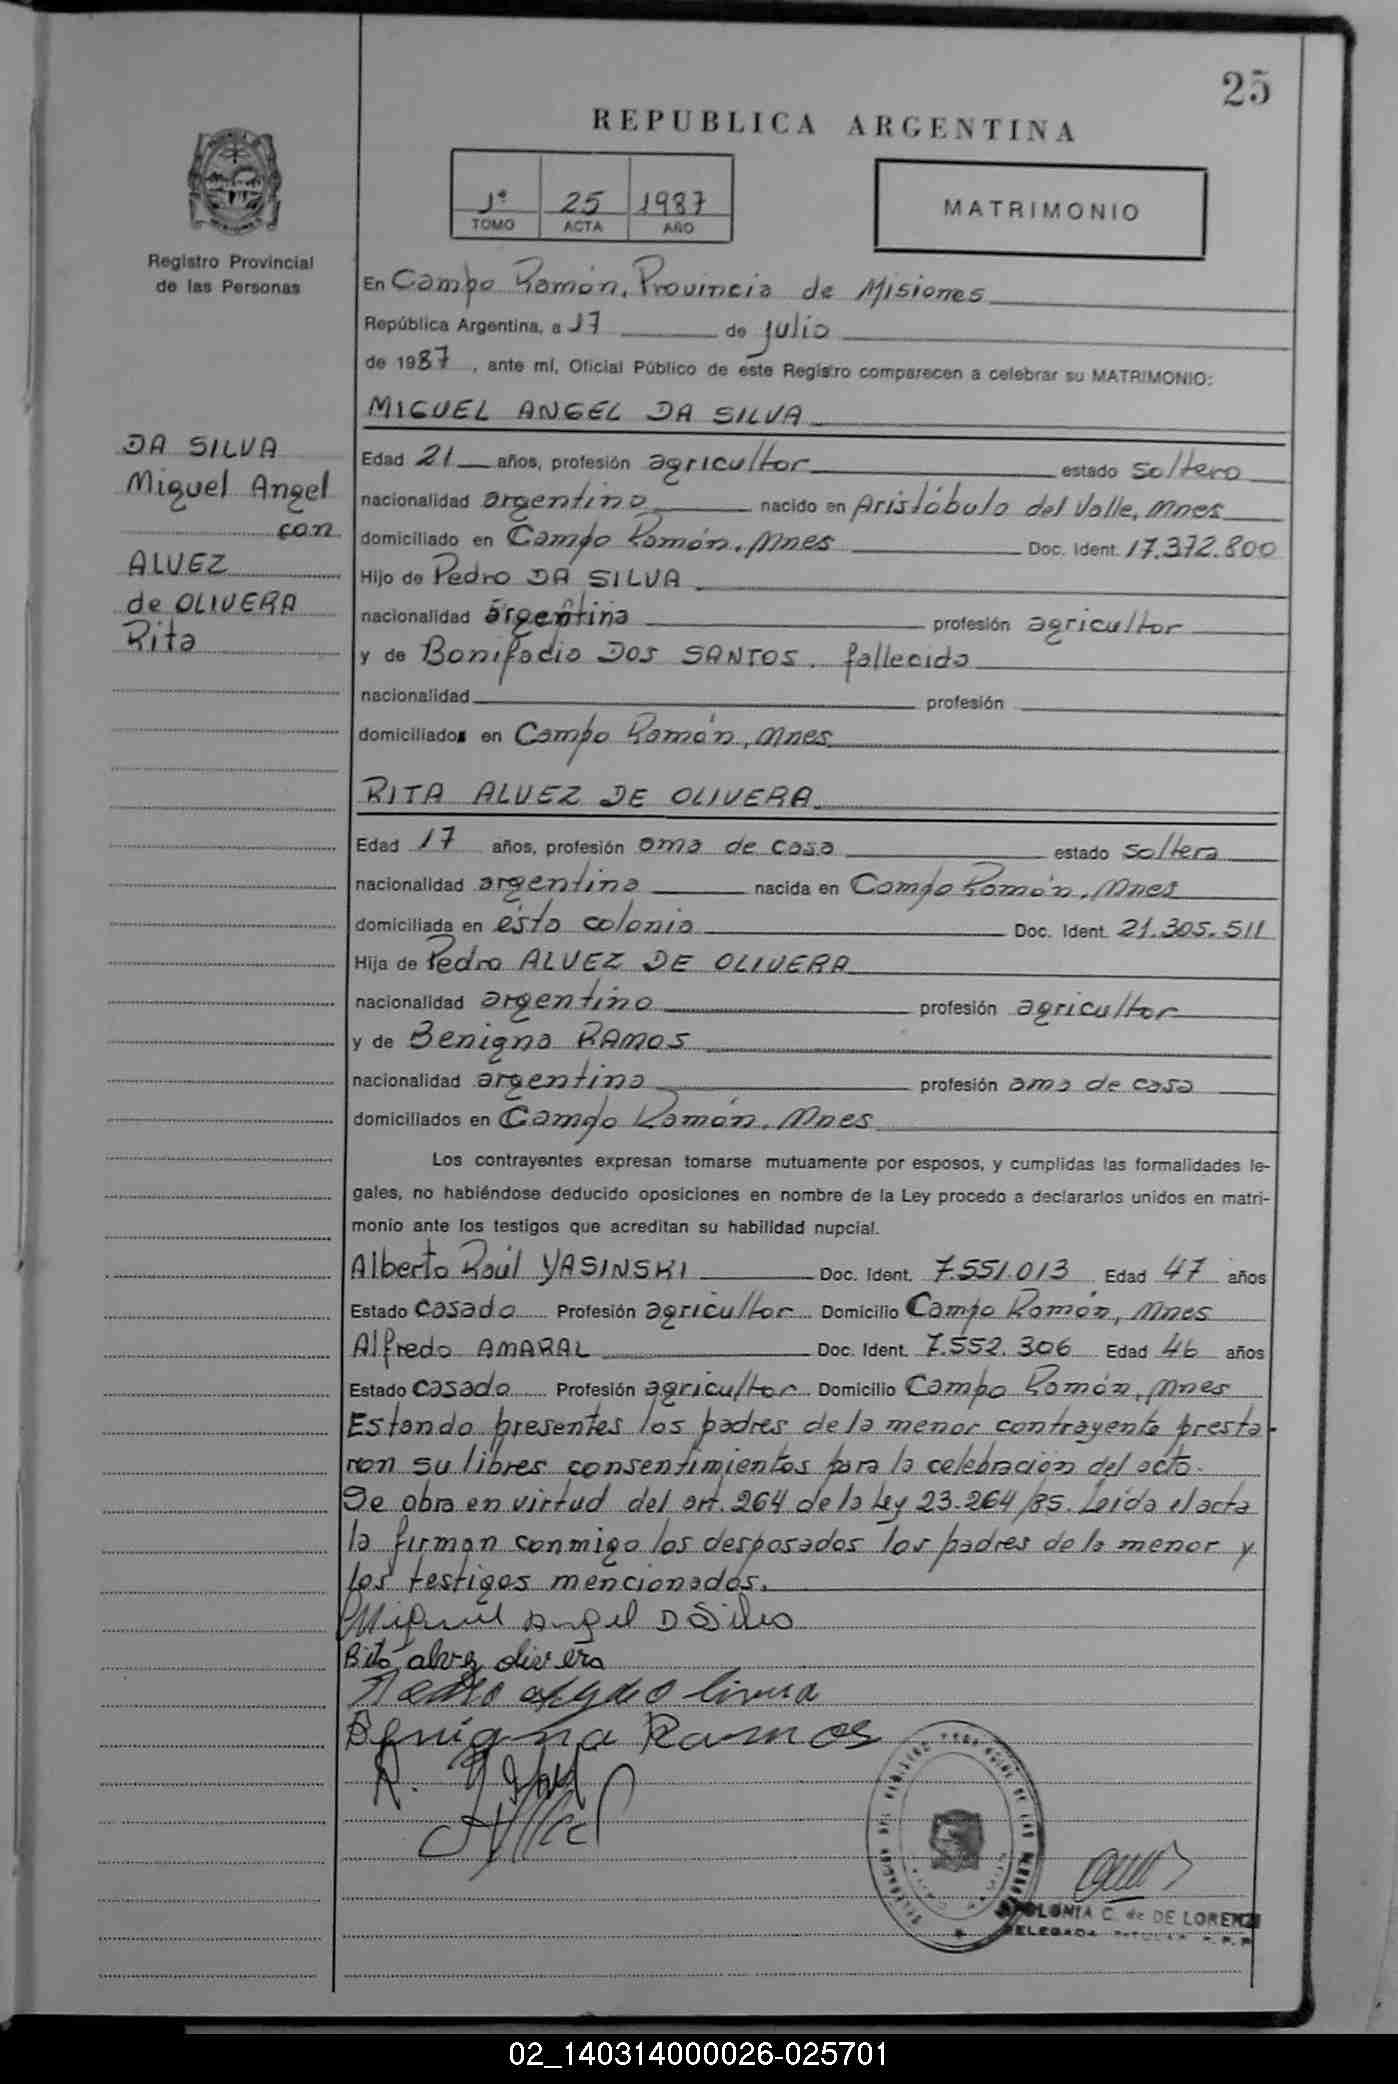 25
REPUBLICA ARGENTINA
1º 25 1987
TOMO ACTA AÑO
MATRIMONIO
Registro Provincial
de las Personas
En Campo Ramón, Provincia de Misiones
República Argentina, a 17 de julio
de 1987, ante mí, Oficial Público de este Registro comparecen a celebrar su MATRIMONIO:
MIGUEL ANGEL DA SILVA
DA SILVA
Miguel Angel
con
ALVEZ
de OLIVERA
Rita
Edad 21 años, profesión agricultor estado soltero
nacionalidad argentino nacido en Aristóbulo del Valle, Mnes
domiciliado en Campo Ramón, Mnes Doc. Ident. 17.372.800
Hijo de Pedro DA SILVA
nacionalidad argentina profesión agricultor
y de Bonifacia DOS SANTOS. fallecida
nacionalidad profesión
domiciliados en Campo Ramón, Mnes
RITA ALVEZ DE OLIVERA
Edad 17 años, profesión ama de casa estado soltera
nacionalidad argentina nacida en Campo Ramón, Mnes
domiciliada en ésta colonia Doc. Ident. 21.305.511
Hija de Pedro ALVEZ DE OLIVERA
nacionalidad argentino profesión agricultor
y de Benigna RAMOS
nacionalidad argentina profesión ama de casa
domiciliados en Campo Ramón, Mnes
Los contrayentes expresan tomarse mutuamente por esposos, y cumplidas las formalidades le-
gales, no habiéndose deducido oposiciones en nombre de la Ley procedo a declararlos unidos en matri-
monio ante los testigos que acreditan su habilidad nupcial.
Alberto Raúl YASINSKI Doc. Ident. 7.551.013 Edad 47 años
Estado casado Profesión agricultor Domicilio Campo Ramón, Mnes
Alfredo AMARAL Doc. Ident. 7.552.306 Edad 46 años
Estado casado Profesión agricultor Domicilio Campo Ramón, Mnes
Estando presentes los padres de la menor contrayente presta-
ron su libres consentimientos para la celebración del acto.
Se obra en virtud del art. 264 de la Ley 23.264/85. Leída el acta
la firman conmigo los desposados los padres de la menor y
los testigos mencionados.
Miguel Angel D Silva
Rita alvez olivera
Benigna Ramos
C. de DE LORENZI
DELEGADA TITULAR
02_140314000026-025701